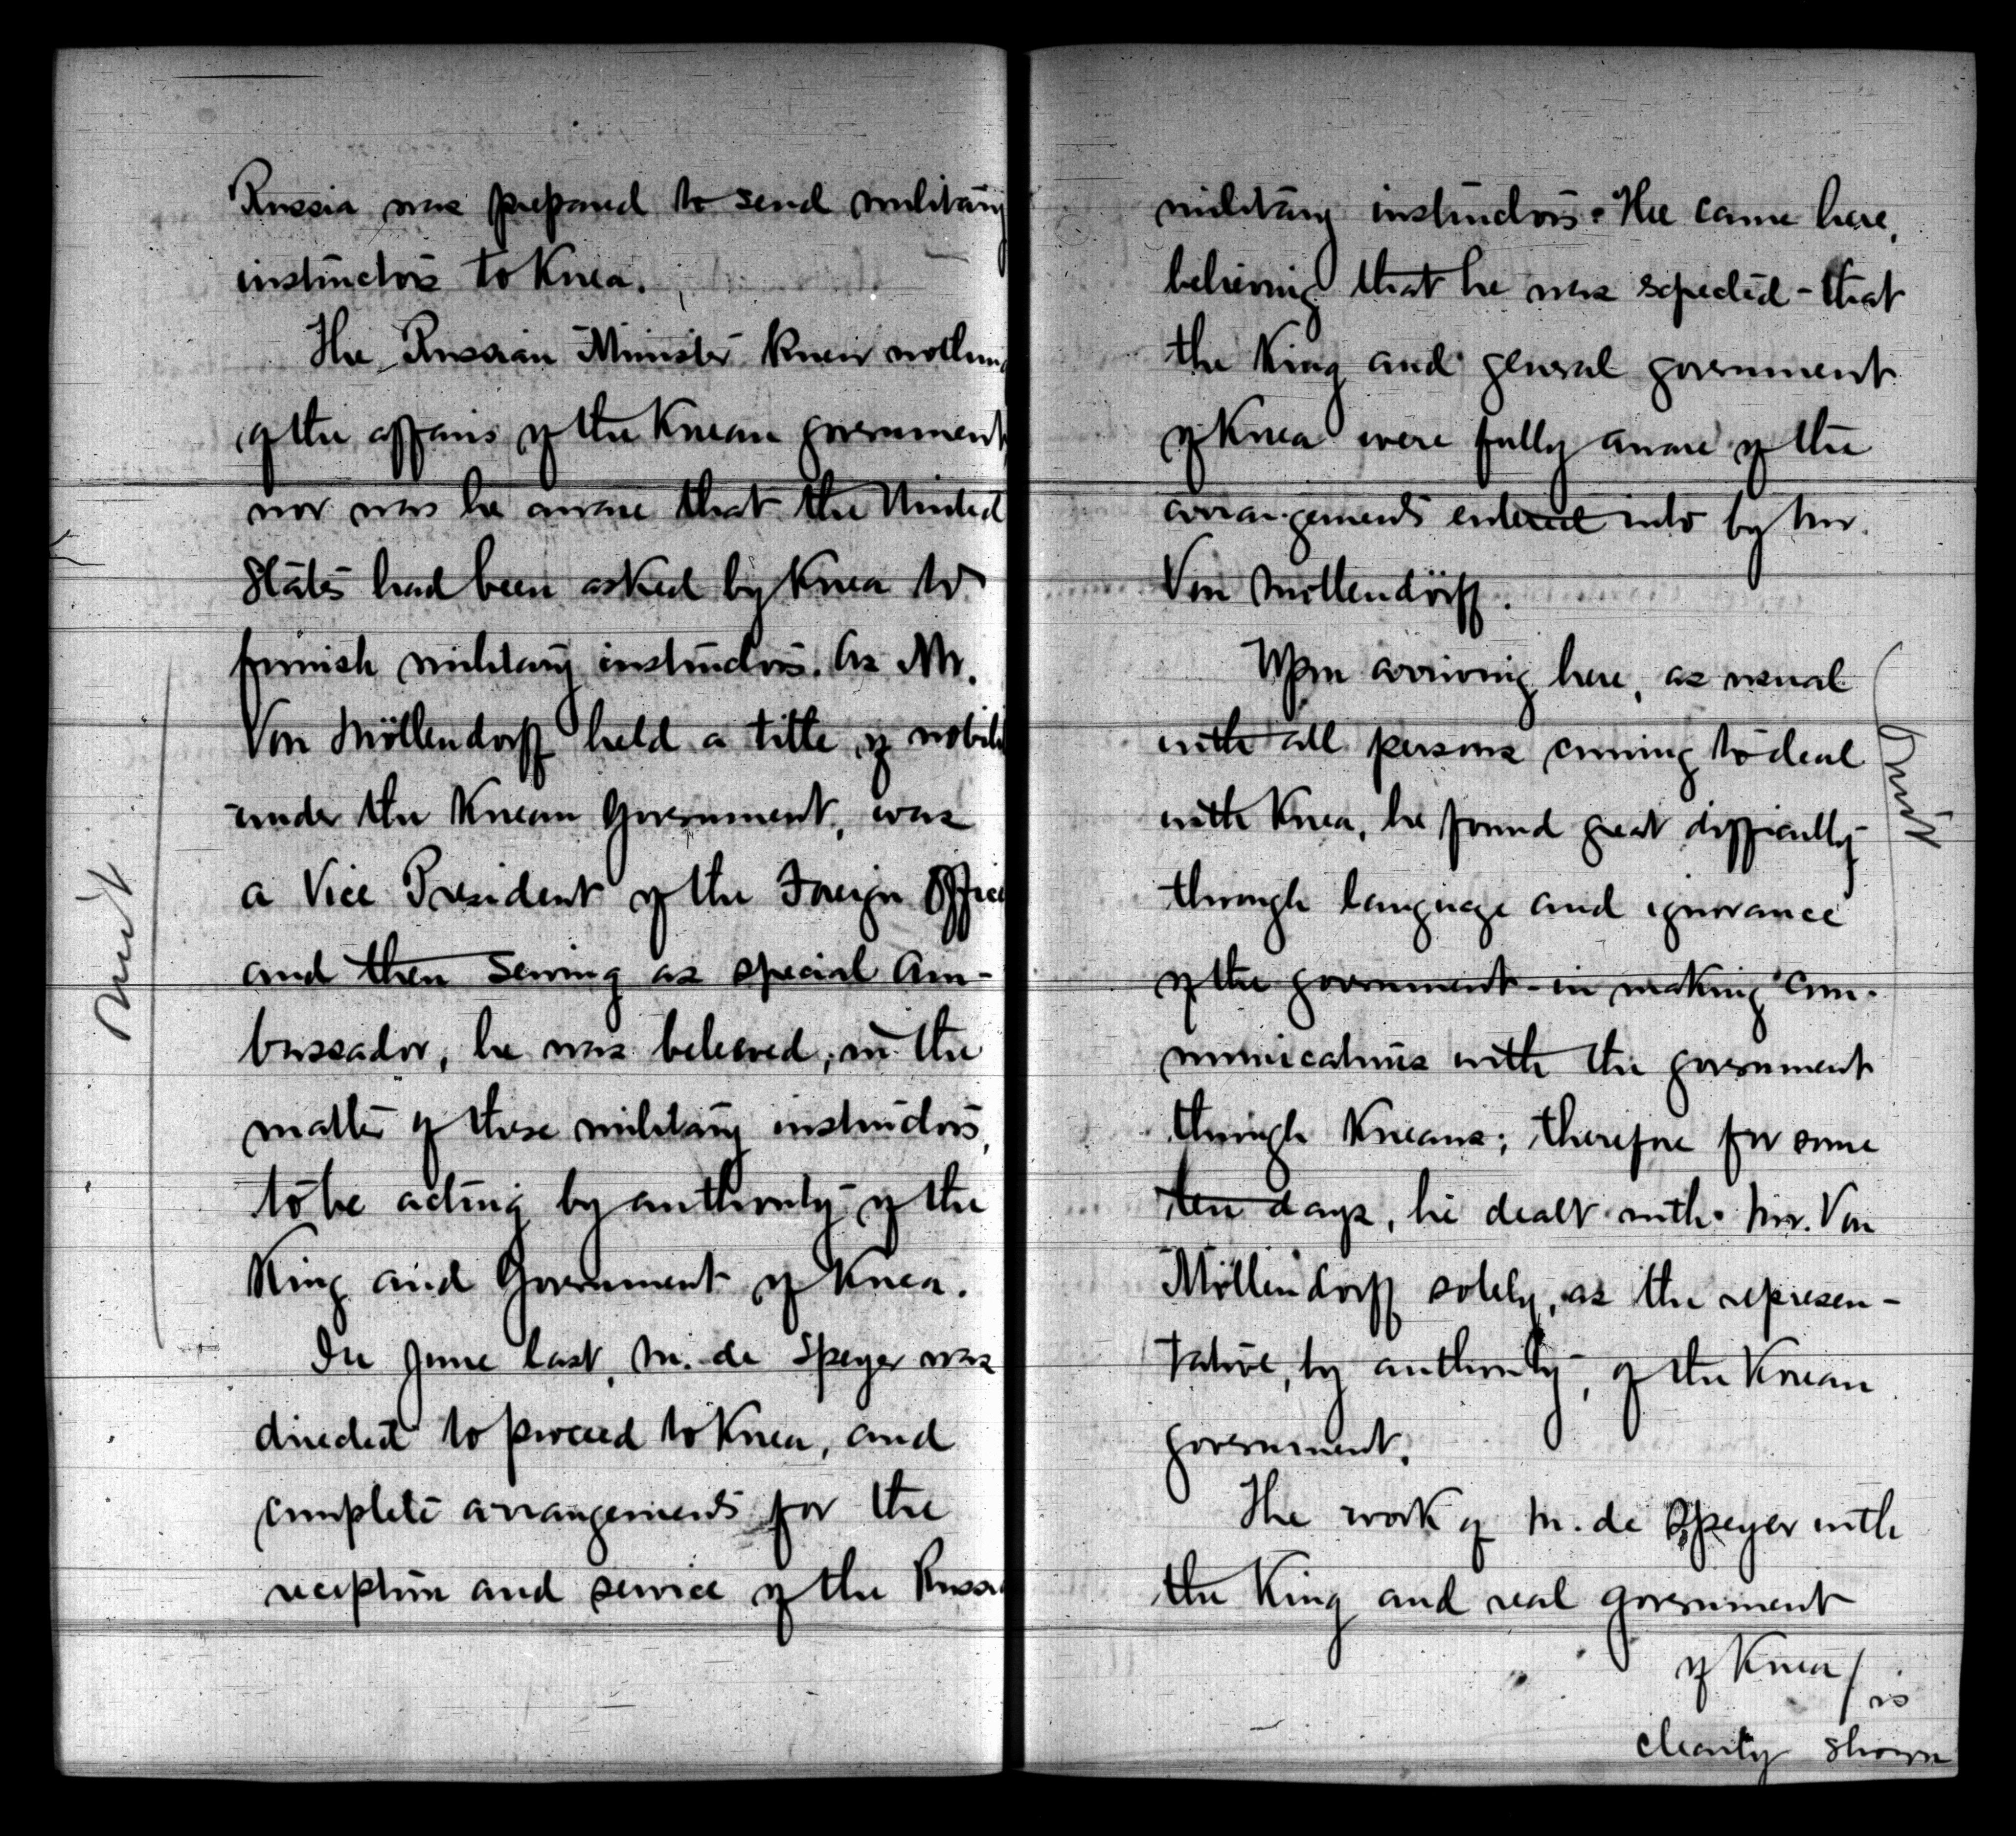 Russia was prepared to send military
instructors to Korea.
The Russian Minister knew nothing
of the affairs of the Korean government,
nor was he aware that the United
States had been asked by Korea to
furnish military instructors. As Mr.
Von Möllendorff held a title of nobili
under the Korean Government, was
a Vice President of the Foreign Office
and then serving as special Am-
bassador, he was believed, in the
matter of these military instructors,
to be acting by authority of the
King and Government of Korea.
In June last, M. de Speyer was
directed to proceed to Korea, and
complete arrangements for the
reception and service of the Russi
omit
military instructors. He came here,
believing that he was expected - that
the King and general government
of Korea were fully aware of the
arrangements entered into by Mr.
Von Möllendorff.
Upon arriving here, as usual
with all persons coming to deal
with Korea, he found great difficulty
through language and ignorance
of the government - in making com-
munications with the government
through Koreans; therefore for some
ten days, he dealt with Mr. Von
Möllendorff solely, as the represen-
tative, by authority, of the Korean
government.
The work of M. de Speyer with
the King and real government
of Korea / is
clearly shown
Omit